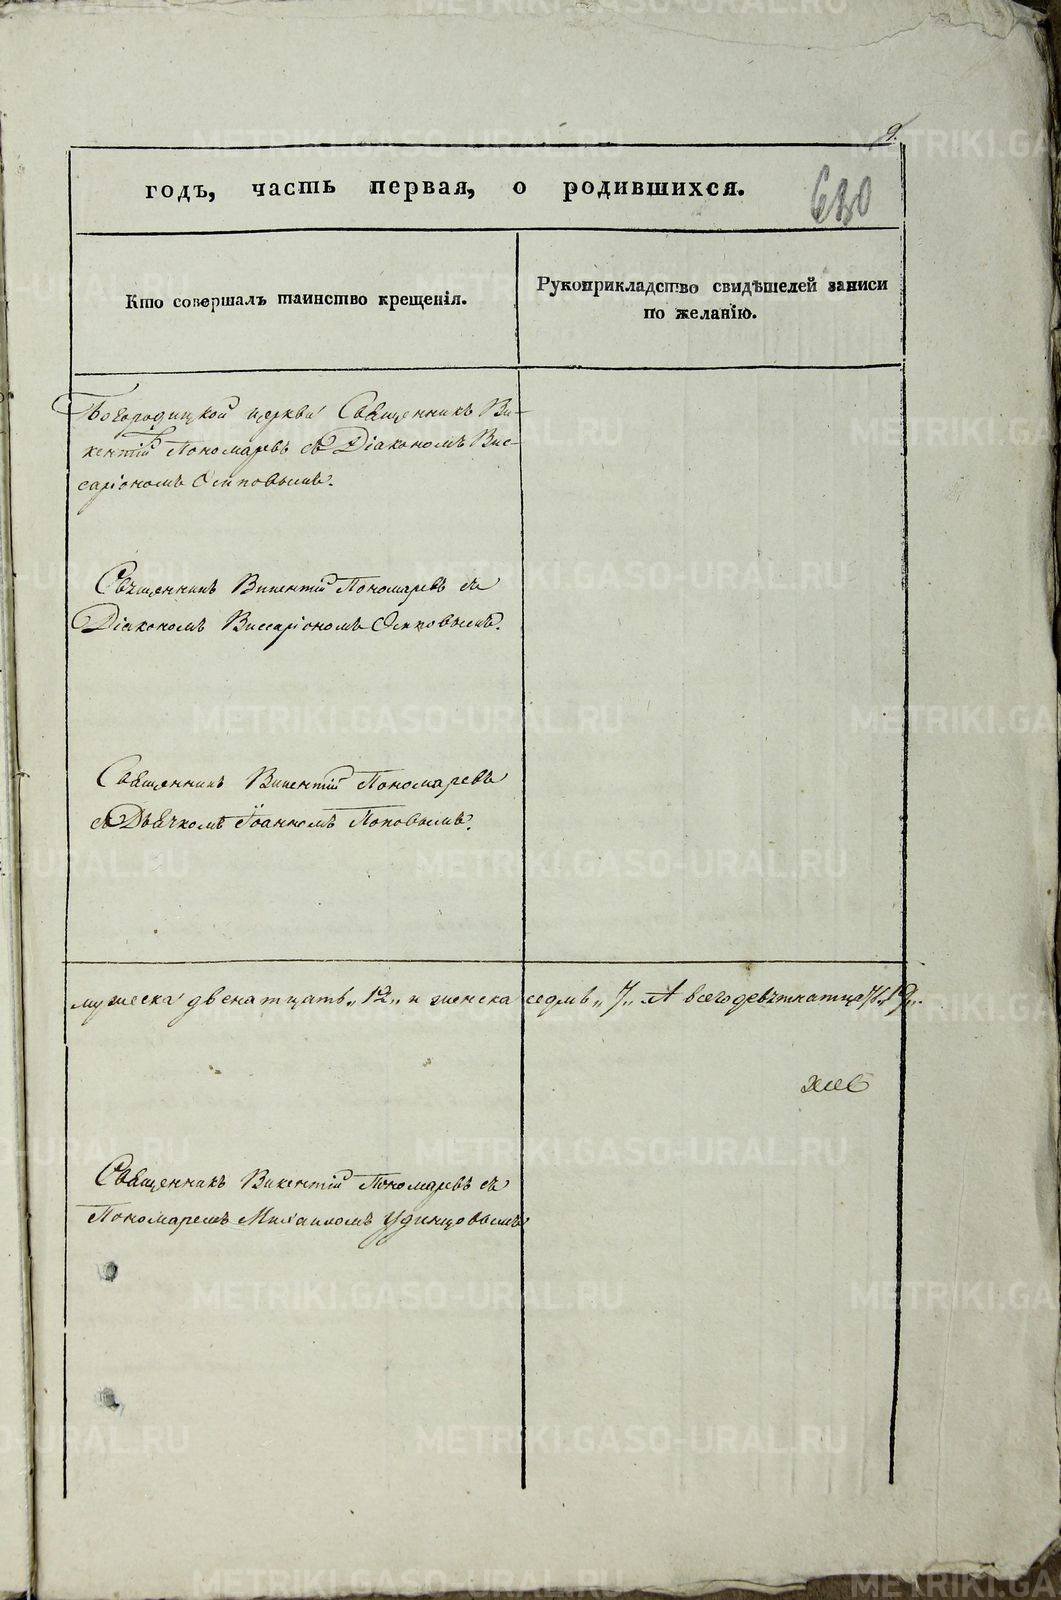 9.
годъ, часть первая, о родившихся.
680
Кто совершалъ таинство крещенія.
Рукоприкладство свидѣтелей записи
по желанію.
Богородицкой церкви Священникъ Ви-
кентій Пономаревъ съ Діакономъ Вис-
саріономъ Осиповымъ.
Священникъ Викентій Пономаревъ съ
Діакономъ Виссаріономъ Осиповымъ.
Священникъ Викентій Пономаревъ
съ Дьячкомъ Іоанномъ Поповымъ.
мужеска двенатцать „12„ и женска седмь „7„ А всего девятнатцать „19„.
Священникъ Викентій Пономаревъ съ
Пономаремъ Михаиломъ Удинцовымъ
METRIKI.GASO-URAL.RU